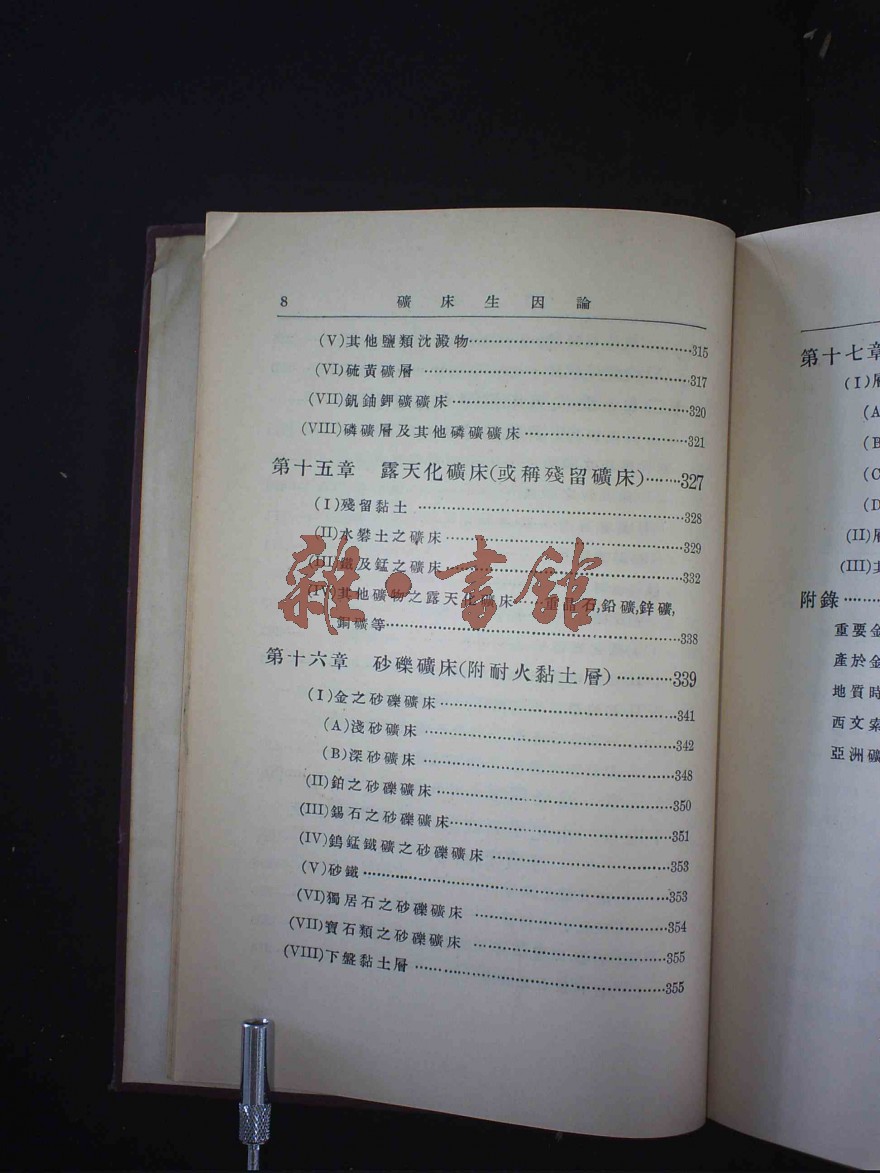 8 礦床生因論
(V)其他鹽類沈澱物……315
(VI)硫黃礦層……317
(VII)釩鈾鉀礦礦床……320
(VIII)磷礦層及其他磷礦礦床……321
第十五章 露天化礦床(或稱殘留礦床)……327
(I)殘留黏土……328
(II)水礬土之礦床……329
(III)鐵及錳之礦床……332
(IV)其他礦物之露天化礦床……重晶石,鉛礦,鋅礦,
銅礦等……338
第十六章 砂礫礦床(附耐火黏土層)……339
(I)金之砂礫礦床……341
(A)淺砂礦床……342
(B)深砂礦床……348
(II)鉑之砂礫礦床……350
(III)錫石之砂礫礦床……351
(IV)鎢錳鐵礦之砂礫礦床……353
(V)砂鐵……353
(VI)獨居石之砂礫礦床……354
(VII)寶石類之砂礫礦床……355
(VIII)下盤黏土層……355
雜·書館
第十七章
(I)
(A
(B
(C
(D
(II)
(III)
附錄……
重要金
產於金
地質時
西文索
亞洲礦